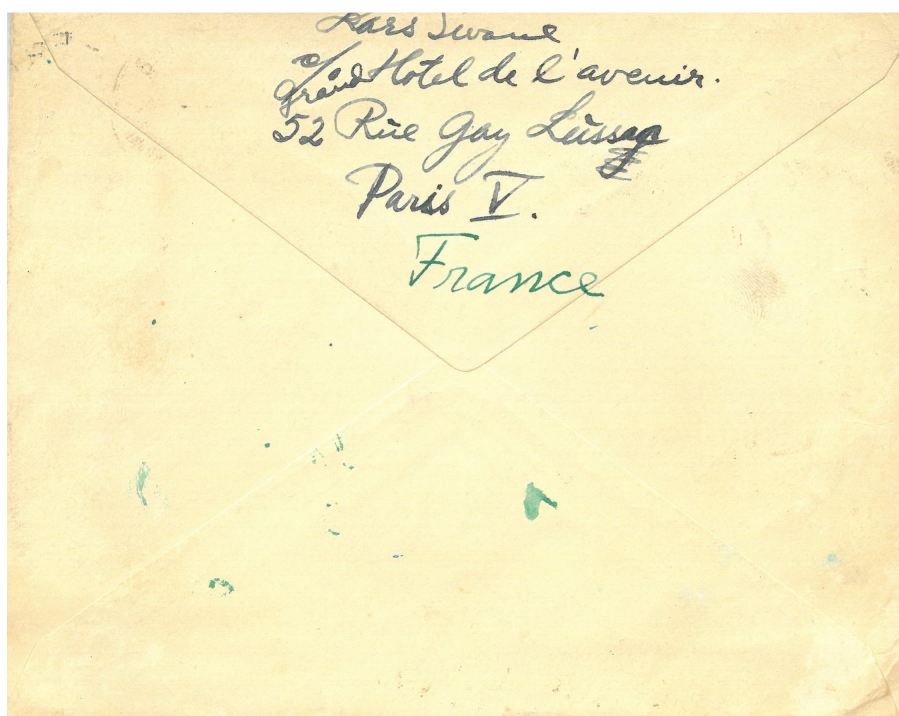 Lars Swane
c/o Grand Hotel de l'avenir.
52 Rue Gay Lussac
Paris V.
France